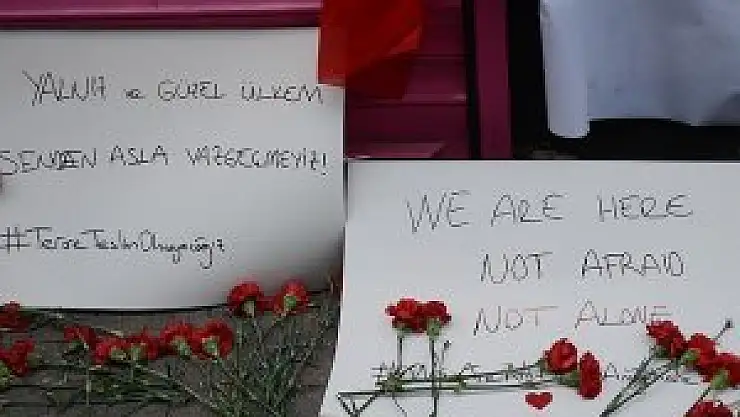 YALNIZ ve GÜZEL ÜLKEM
SENDEN ASLA VAZGEÇMEYİZ!
#TeröreTeslimOlmayacağız
WE ARE HERE
NOT AFRAID
NOT ALONE